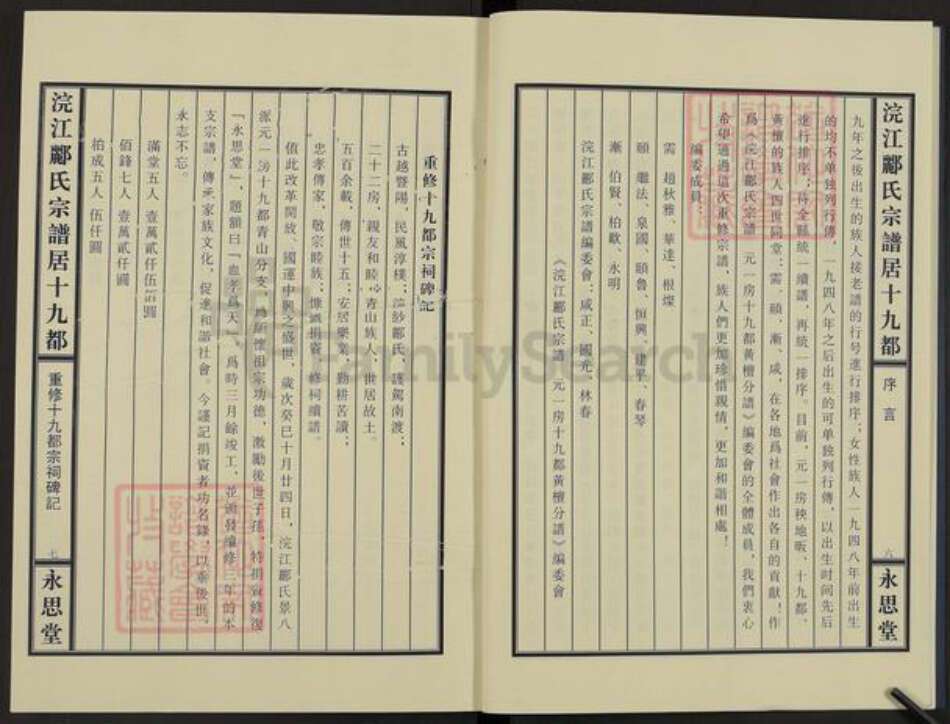 浣江酈氏宗譜居十九都
序言
六
永思堂
九年之後出生的族人接老譜的行号進行排序；女性族人一九四八年前出生
的均不单独列行傳，一九四八年之后出生的可单独列行傳，以出生时间先后
進行排序；待全縣統一續譜，再統一排序。目前，元一房秧地畈、十九都、
黃檀的族人四世同堂：需、頤、漸、咸，在各地爲社會作出各自的貢獻！作
爲《浣江酈氏宗譜·元一房十九都黃檀分譜》編委會的全體成員，我們衷心
希望通過這次重修宗譜，族人們更加珍惜親情，更加和諧相處！
編委成員：
需 趙秋雅、華達、根燦
頤 繼法、泉國、頤魯、恒興、建平、春琴
漸 伯賢、柏歐、永明
浣江酈氏宗譜編委會：咸正、國光、林春
《浣江酈氏宗譜·元一房十九都黃檀分譜》編委會
重修十九都宗祠碑記
古越暨陽，民風淳樸；浣紗酈氏，護駕南渡；
二十二房，親友和睦；青山族人，世居故土。
五百余載，傳世十五；安居樂業，勤耕苦讀；
忠孝傳家，敬宗睦族；慷慨捐資，修祠續譜。
值此改革開放、國運中興之盛世，歲次癸巳十月廿四日，浣江酈氏景八
派元一房十九都青山分支，爲緬懷祖宗功德，激勵後世子孫，特捐資修復
「永思堂」，題額曰「血孝爲天」，爲時三月餘竣工，並頒發續修三年的本
支宗譜，傳承家族文化，促進和諧社會。今謹記捐資者功名錄，以垂後世，
永志不忘。
滿堂五人 壹萬貳仟伍佰圓
佰鋒七人 壹萬貳仟圓
柏成五人 伍仟圓
浣江酈氏宗譜居十九都
重修十九都宗祠碑記
七
永思堂
FamilySearch